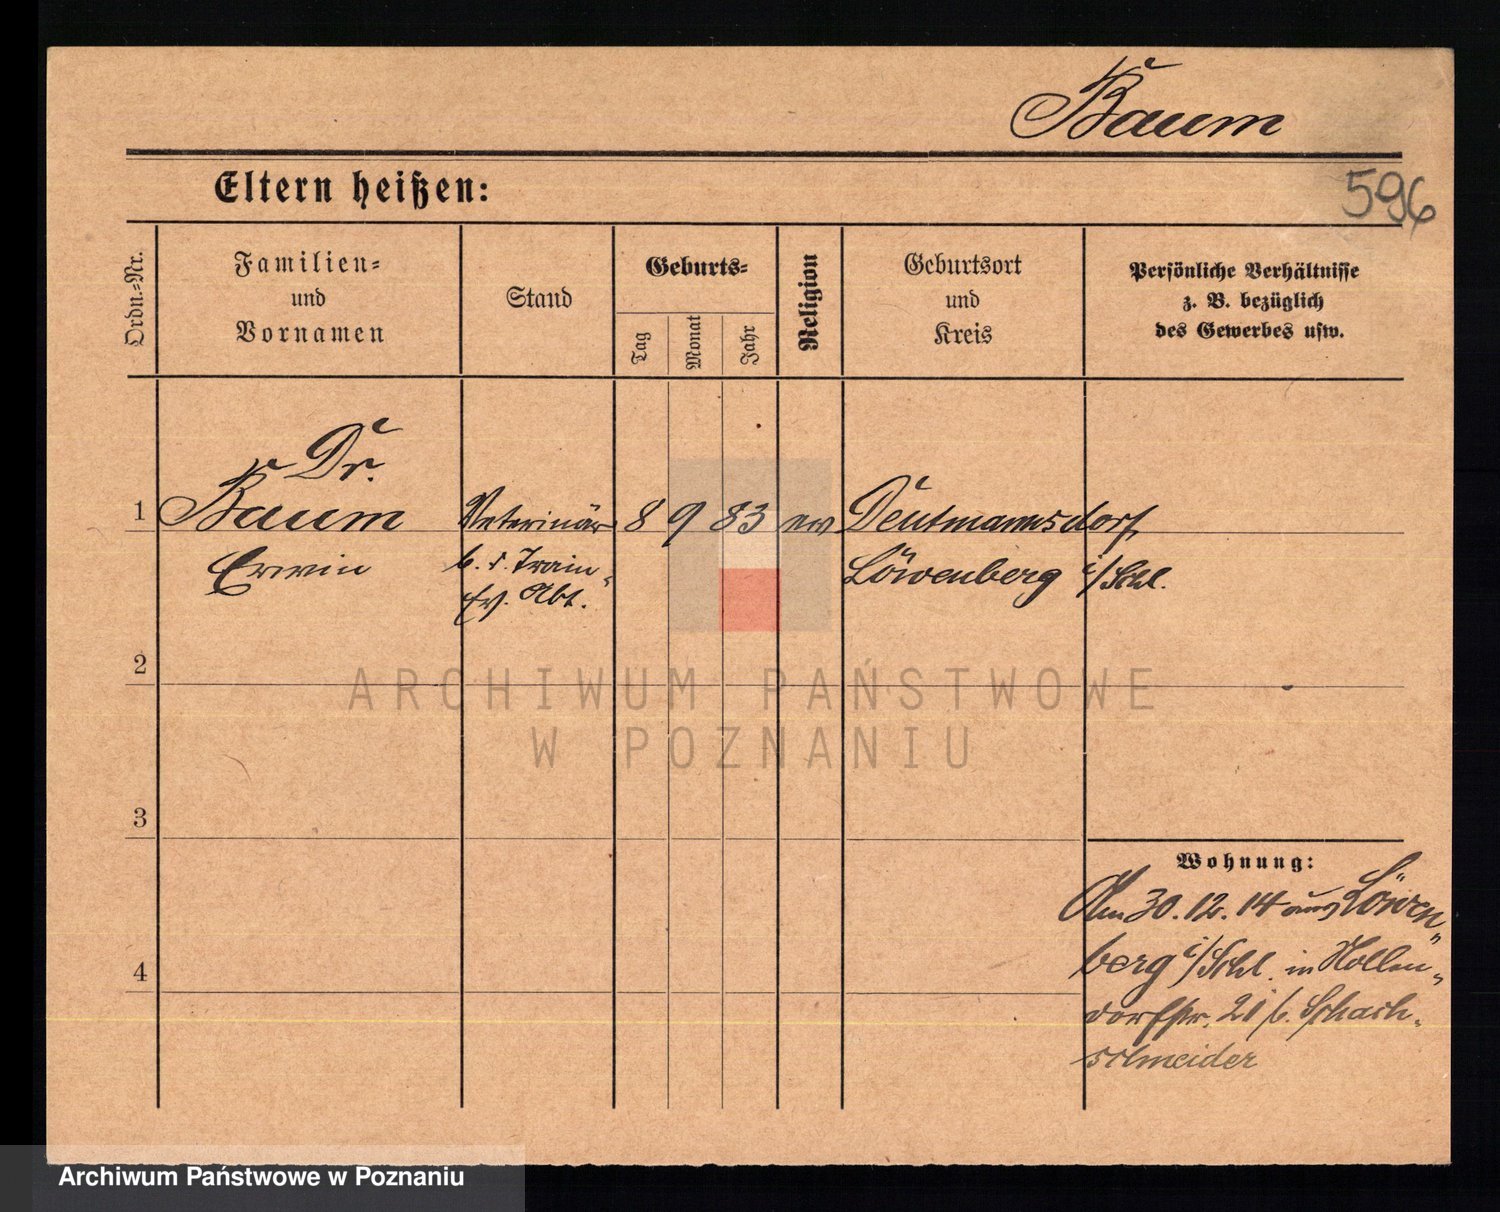 Baum
Eltern heißen:
596
Ordn.-Nr.
Familien-
und
Vornamen
Stand
Geburts-
Tag
Monat
Jahr
Religion
Geburtsort
und
Kreis
Persönliche Verhältnisse
z. B. bezüglich
des Gewerbes usw.
Dr.
1 Baum Veterinär 8 9 83 ev Deutmannsdorf,
Erwin b. d. Train- Löwenberg i/Schl.
Abt.
2
ARCHIWUM PAŃSTWOWE
W POZNANIU
3
Wohnung:
Am 30.12.14 aus Löwen-
4 berg i/Schl. in Hollen-
dorfstr. 21 b.
schneider
Archiwum Państwowe w Poznaniu